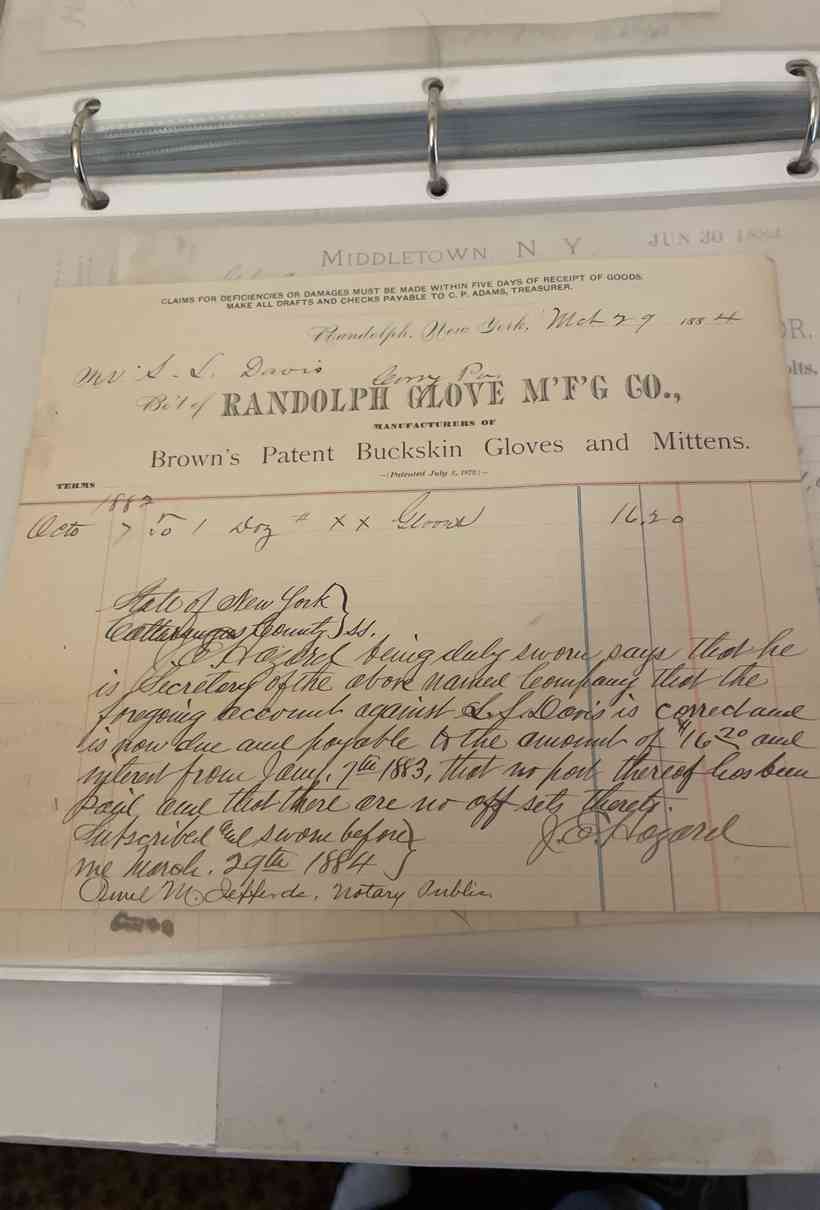 MIDDLETOWN N Y. JUN 30
CLAIMS FOR DEFICIENCIES OR DAMAGES MUST BE MADE WITHIN FIVE DAYS OF RECEIPT OF GOODS.
MAKE ALL DRAFTS AND CHECKS PAYABLE TO C. P. ADAMS, TREASURER.
Randolph, New York, Mch 29 1884
Mr S. L. Davis
Corry Pa.
Bo't of RANDOLPH GLOVE M'F'G CO.,
MANUFACTURERS OF
Brown's Patent Buckskin Gloves and Mittens.
(Patented July 2, 1872)
TERMS
Octo 7 1 Doz # XX Gloves 16.20
State of New York }
Cattaraugus County } ss.
J. E. Hazard being duly sworn says that he
is Secretary of the above named Company that the
foregoing account against S. L. Davis is correct and
is now due and payable to the amount of $16 20 and
interest from Jany. 7th 1883, that no part thereof has been
paid, and that there are no off sets thereto.
Subscribed and sworn before }
me March. 29th 1884 }
J. E. Hazard
M. Jefferds, Notary Public